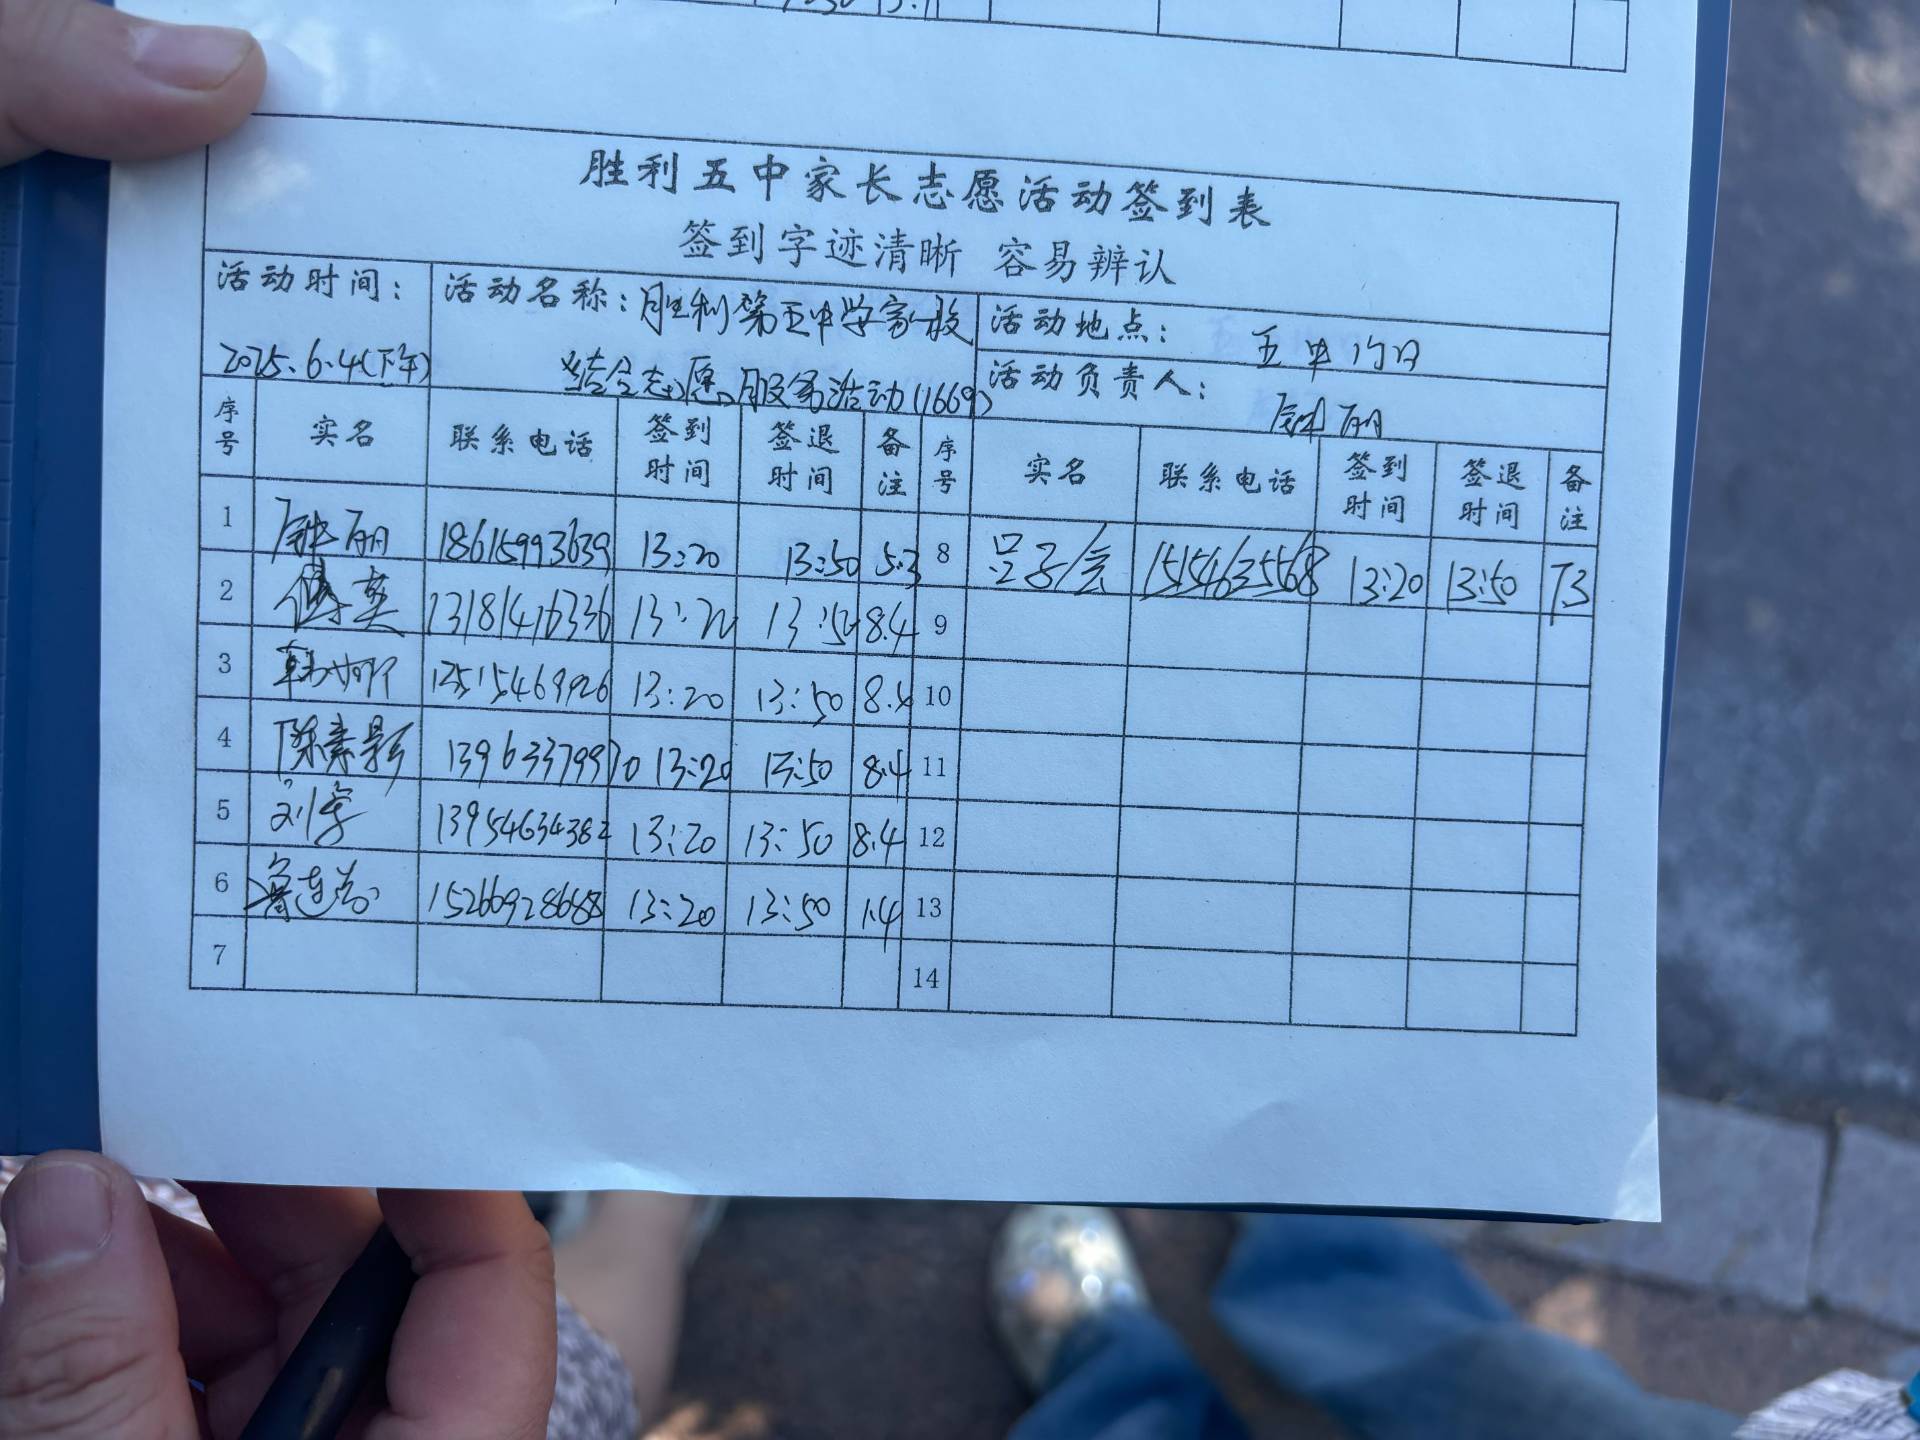 胜利五中家长志愿活动签到表
签到字迹清晰 容易辨认
活动时间: 2025.6.4(下午) 活动名称:胜利第五中学家校结合志愿服务活动(1669) 活动地点: 五中门口
活动负责人: 丽
序号 实名 联系电话 签到时间 签退时间 备注 序号 实名 联系电话 签到时间 签退时间 备注
1 丽 18615993639 13:20 13:50 5.3 8 吕子会 15154635568 13:20 13:50 7.3
2 傅英 13181416336 13:20 13:50 8.4 9
3 韩 13:20 13:50 8.4 10
4 陈素影 13963379970 13:20 13:50 8.4 11
5 刘 13954634382 13:20 13:50 8.4 12
6 鲁连 15266928688 13:20 13:50 1.4 13
7 14